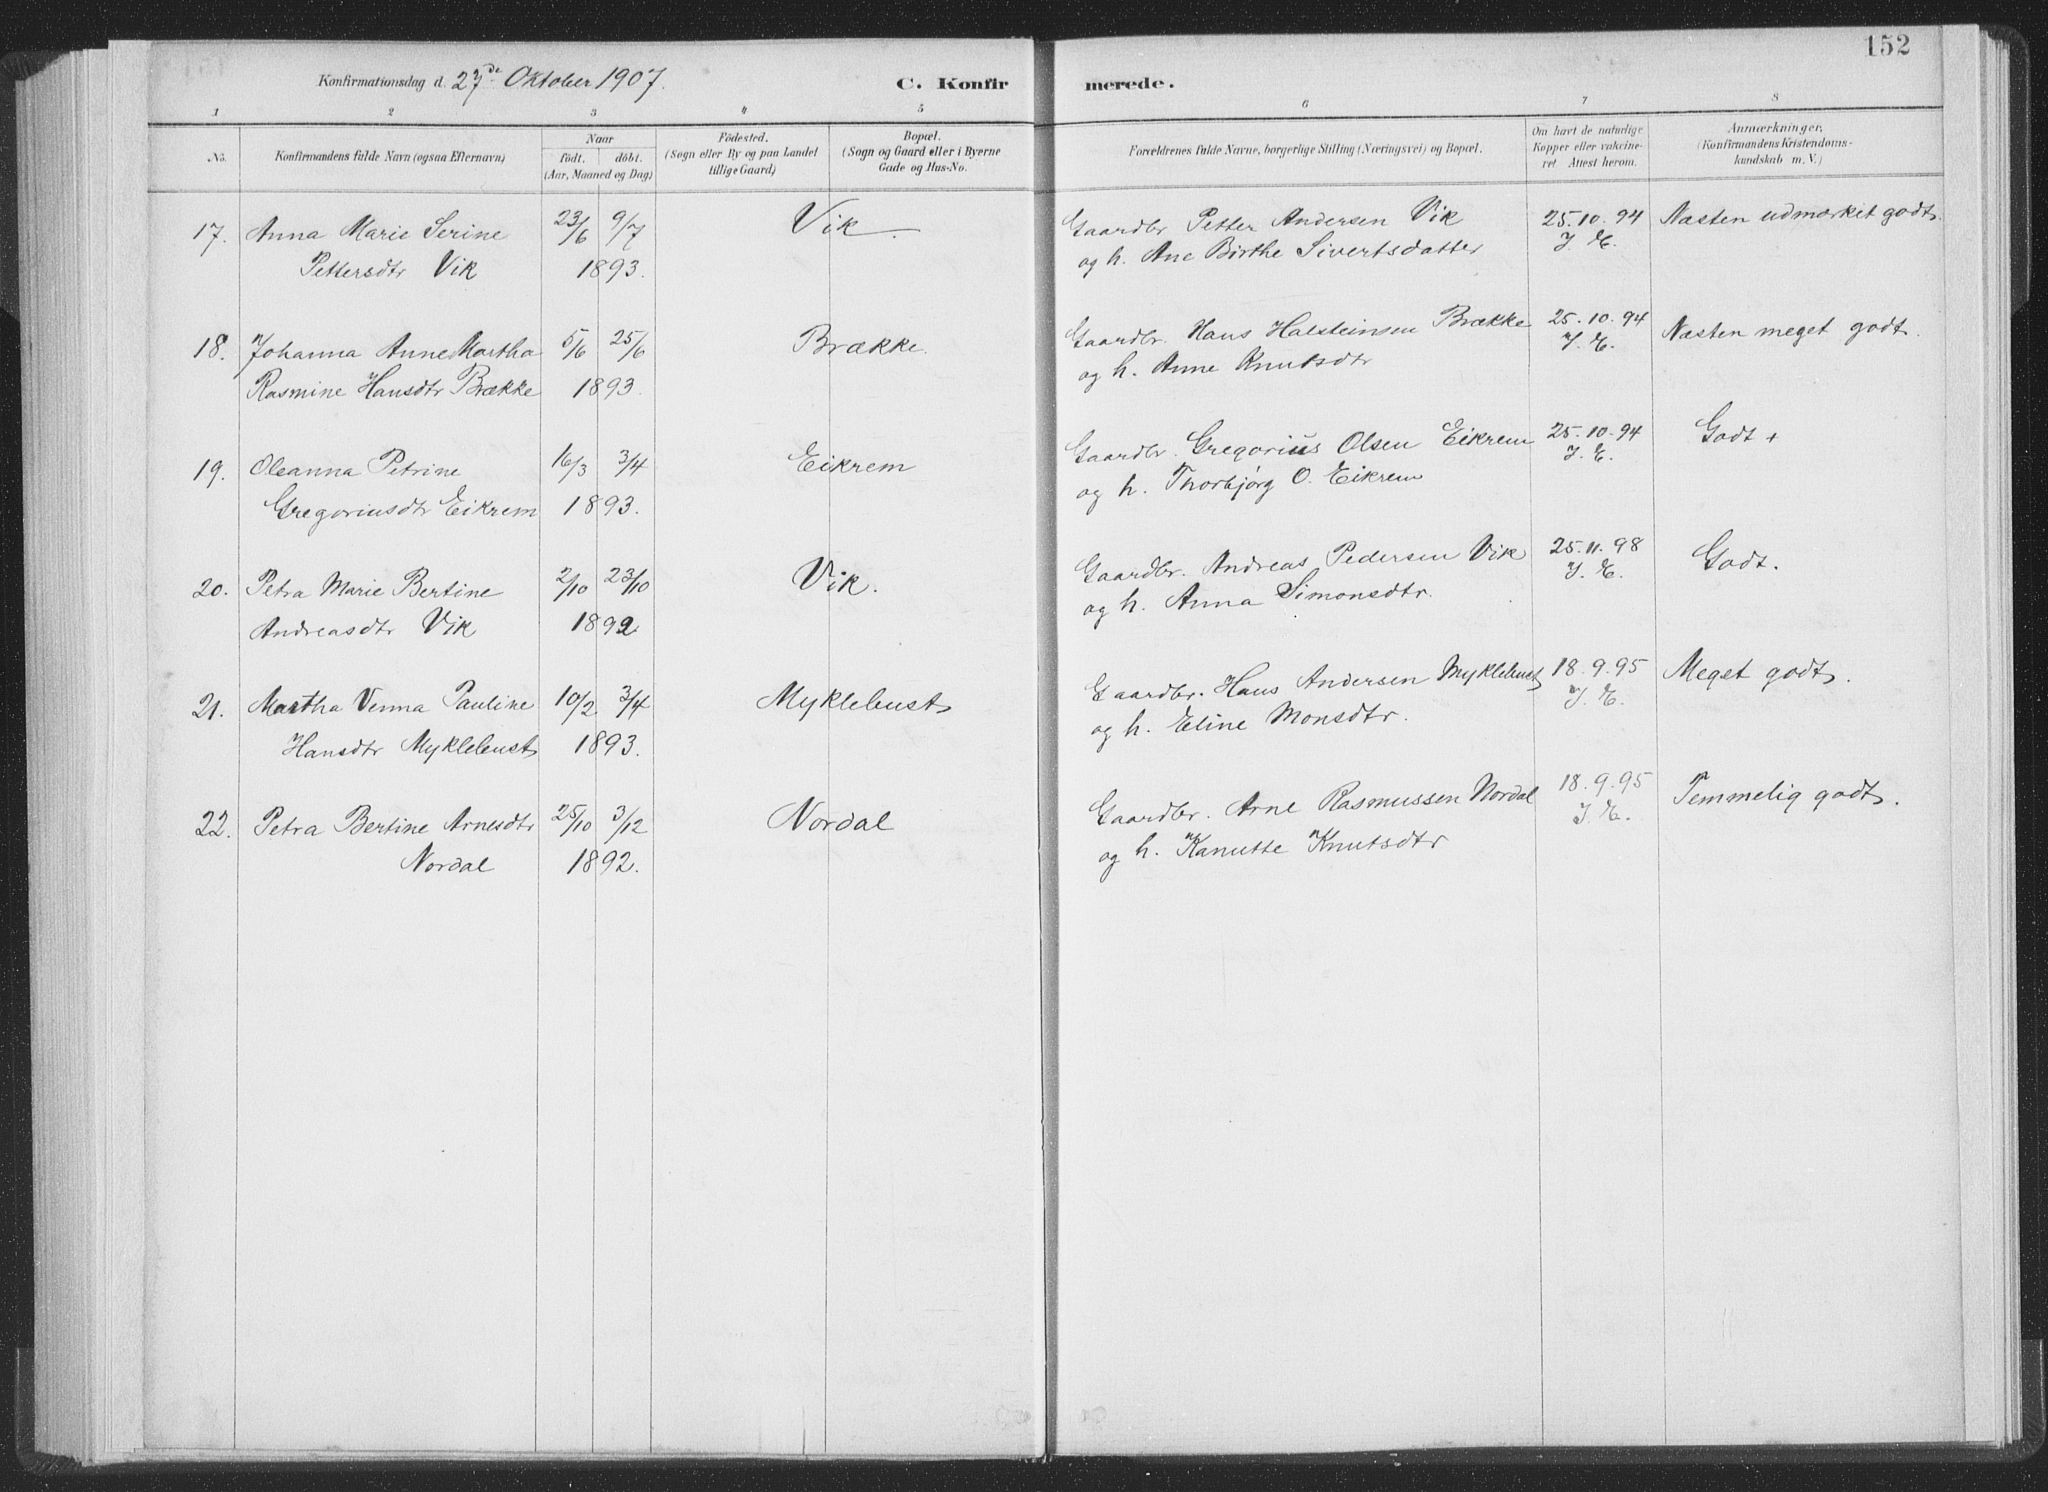 152
Konfirmationsdag d. 27de Oktober 1907. C. Konfirmerede.
1 2 3 4 5 6 7 8
No. Konfirmandens fulde Navn (ogsaa Efternavn) Naar født. døbt. (Aar, Maaned og Dag) Födested. (Sogn eller By og paa Landet tillige Gaard) Bopæl. (Sogn og Gaard eller i Byerne Gade og Hus-No. Forældrenes fulde Navne, borgerlige Stilling (Næringsvei) og Bopæl. Om havt de naturlige Kopper eller vakcineret Attest herom. Anmærkninger, (Konfirmandens Kristendomskundskab m. V.)
17. Anna Marie Serine 23/6 9/7 Vik. Gaardbr Petter Andersen Vik 25.10.94 Næsten udmærket godt.
Pettersdtr Vik 1893. og h. Ane Birthe Sivertsdatter J. E.
18. Johanna Anne Martha 5/6 25/6 Brække. Gaardbr. Hans Halsteinsen Brække 25.10.94 Næsten meget godt.
Rasmine Hansdtr Brække 1893. og h. Anne Knutsdtr J. E.
19. Oleanna Petrine 16/3 3/4 Eikrem Gaardbr. Gregorius Olsen Eikrem 25.10.94 Godt +
Gregoriusdtr Eikrem 1893. og h. Thorbjørg O. Eikrem J. E.
20. Petra Marie Bertine 2/10 23/10 Vik. Gaardbr. Andreas Pedersen Vik 25.11.98 Godt.
Andreasdtr Vik 1892 og h. Anna Simonsdtr. J. E.
21. Martha Venna Pauline 10/2 3/4 Myklebust Gaardbr. Hans Andersen Myklebust 18.9.95 Meget godt.
Hansdtr Myklebust 1893. og h. Eline Monsdtr. J. E.
22. Petra Bertine Arnesdtr 25/10 3/12 Nordal Gaardbr. Arne Rasmussen Nordal 18.9.95 Temmelig godt.
Nordal 1892. og h. Kanutte Knutsdtr J. E.